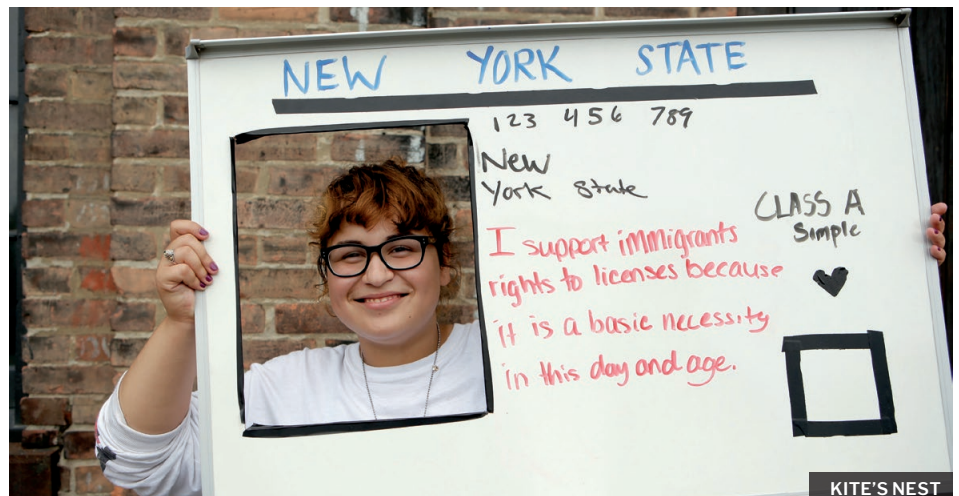 NEW YORK STATE
123 456 789
New
York State
CLASS A
Simple
I support immigrants
rights to licenses because
it is a basic necessity
in this day and age.
KITE'S NEST